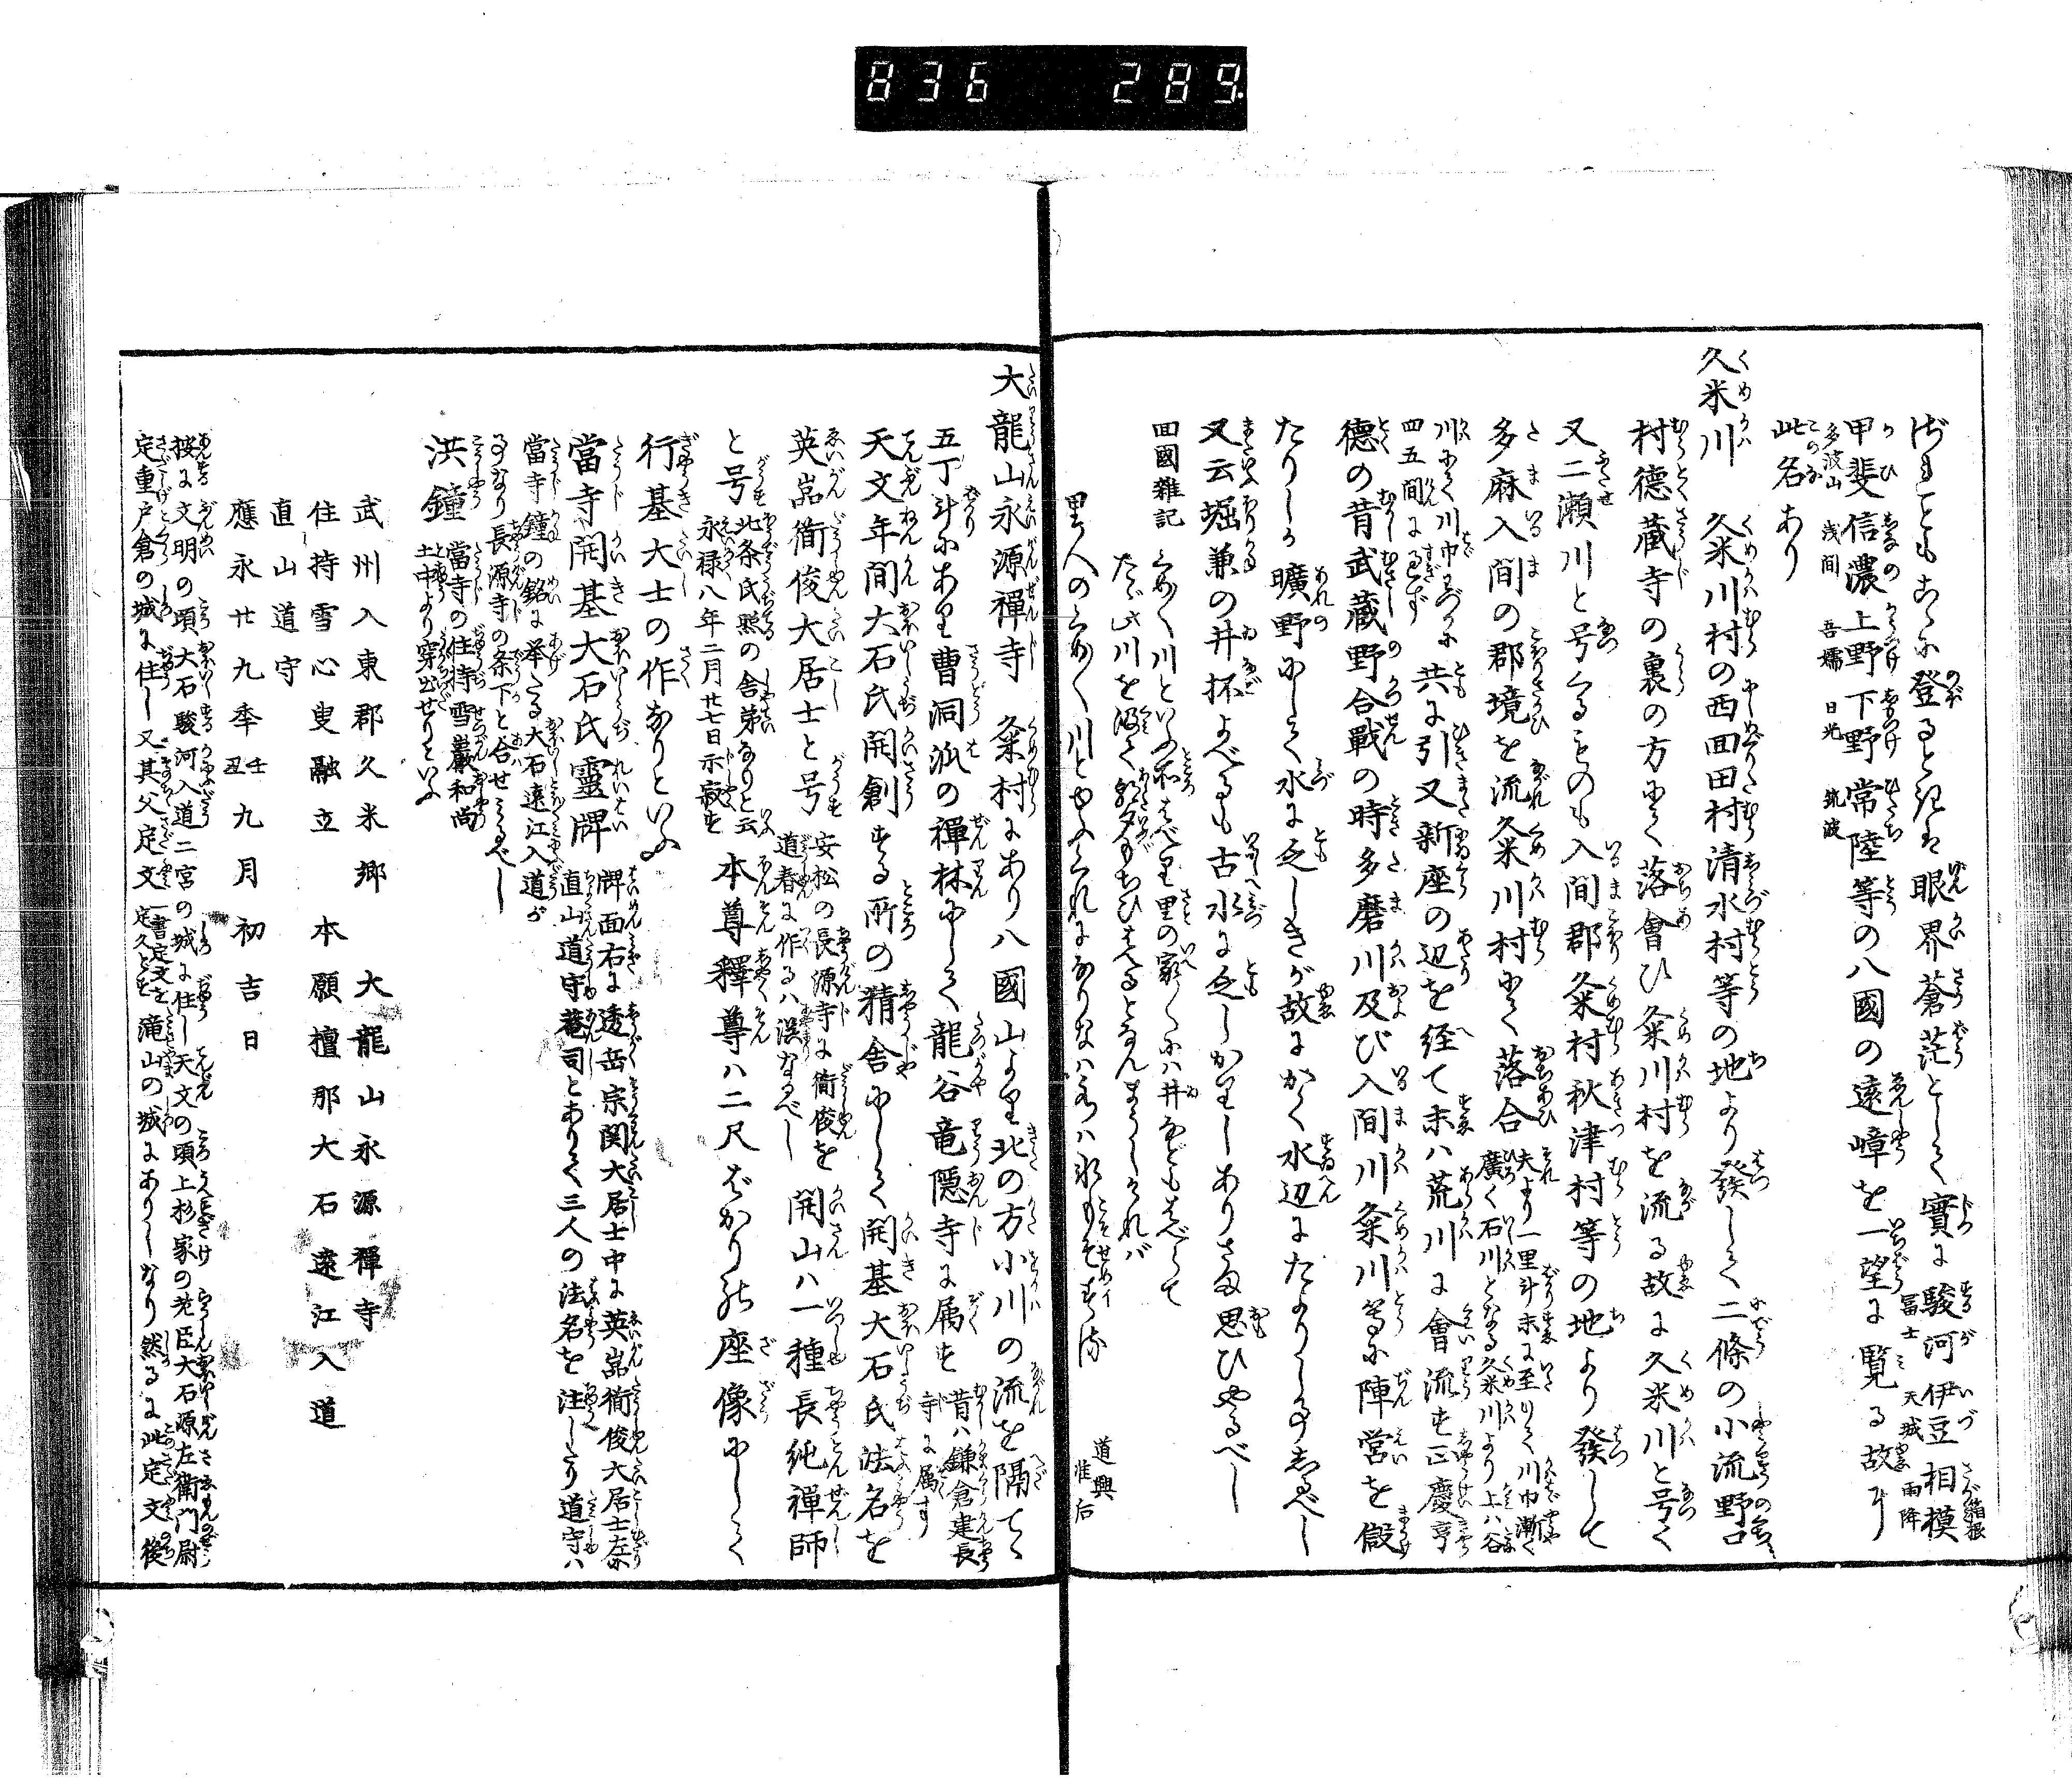 836 289
ざれどもこゝに登るときハ眼界蒼茫として實に駿河伊豆相模箱根
甲斐信濃上野下野常陸等の八國の遠嶂を一望に覧る故に
多波山 浅間 吾嬬 日光 筑波 冨士 天城 雨降
此名あり
久米川 久米川村の西回田村清水村等の地より發して二條の小流野口
村德蔵寺の裏の方にて落會ひ粂川村を流る故に久米川と号く
又二瀬川と号くるものも入間郡粂村秋津村等の地より發して
多麻入間の郡境を流久米川村にて落合夫より一里斗末に至りて川巾漸く
廣く石川となる久米川より上ハ谷
川にて川巾わづかに
四五間にすぎず共に引又新座の辺を経て末ハ荒川に會流す正慶享
德の昔武蔵野合戰の時多磨川及び入間川粂川等に陣営を儲
たりしハ曠野にして水に乏しきが故にかく水辺にたよりしる事しるべし
又云堀兼の井杯よべるも古水に乏しかりしありさま思ひやるべし
回國雑記 くめく川といふ所はべり里の家〱にハ井なども侍らで
たゞ此川を汲て朝夕もちひ侍るとなんまうしければ
里人のくめく川とゆふくれになりなハ水ハ氷もぞする 道興
准后
大龍山永源禪寺 粂村にあり八國山より北の方小川の流を隔てゝ
五丁斗にあり曹洞派の禪林にして龍谷竜隠寺に属す昔ハ鎌倉建長
寺に属す
天文年間大石氏開創する所の精舎にして開基大石氏法名を
英嵓衜俊大居士と号安松の長源寺に衜俊を
道春に作るハ誤なるべし開山ハ一種長純禪師
と号北条氏照の舎弟なりと云
永禄八年二月廿七日示寂す本尊釋尊ハ二尺ばかりの座像にして
行基大士の作なりといふ
當寺開基大石氏靈牌 牌面右に透岳宗関大居士中に英嵓衜俊大居士左に
直山道守菴司とありて三人の法名を注したり道守ハ
當寺鐘の銘に举たる大石遠江入道が
事なり長源寺の条下と合せみるべし
洪鐘 當寺の住持雪巖和尚
土中より穿出せりといふ
武州入東郡久米郷 大龍山永源禪寺
住持雪心叟融立 本願檀那大石遠江入道
直山道守
應永廿九年壬丑九月初吉日
按に文明の頃大石駿河入道二宮の城に住し天文の頃上杉家の老臣大石源左衛門尉
定重戸倉の城に住し又其父定文一書定文を
定久とす滝山の城にありしなり然るに此定文後